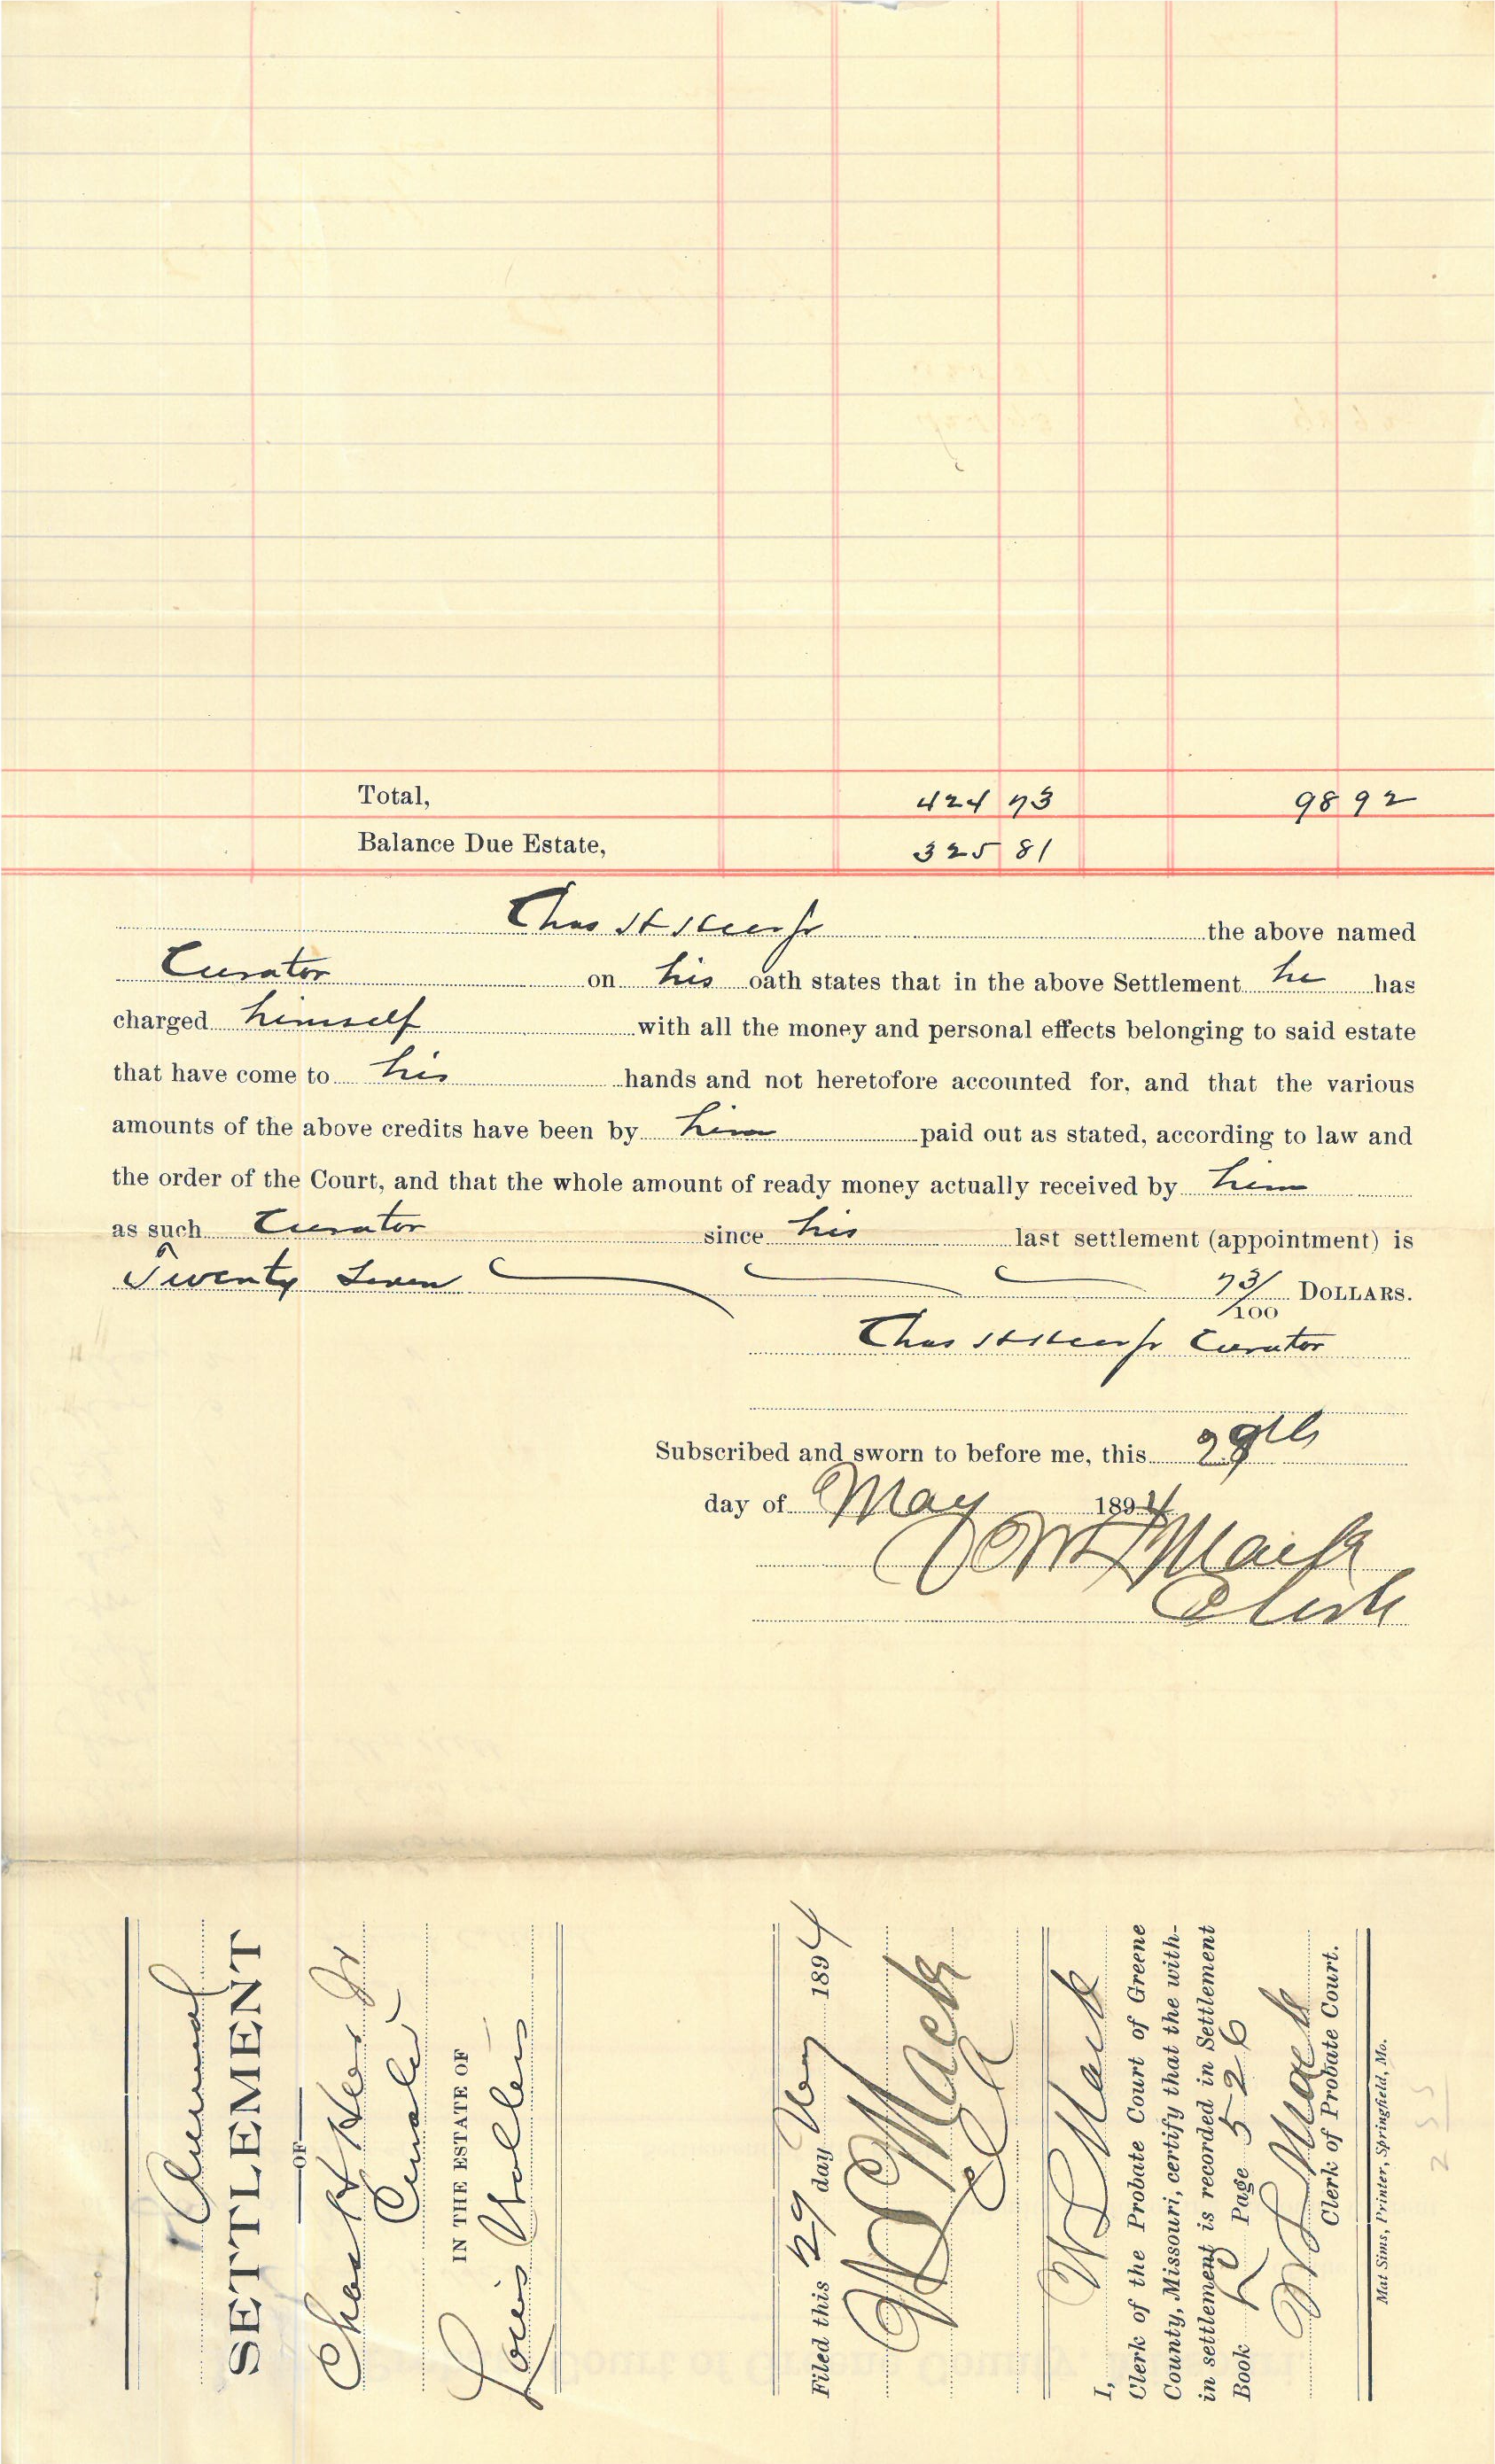 Total, 424 73 98 92
Balance Due Estate, 325 81
Chas H Heer Jr the above named
Curator on his oath states that in the above Settlement he has
charged himself with all the money and personal effects belonging to said estate
that have come to his hands and not heretofore accounted for, and that the various
amounts of the above credits have been by him paid out as stated, according to law and
the order of the Court, and that the whole amount of ready money actually received by him
as such Curator since his last settlement (appointment) is
Twenty Seven 73/100 DOLLARS.
Chas H Heer Jr Curator
Subscribed and sworn to before me, this 29th
day of May 1894
W L Mack
Clerk
Annual
SETTLEMENT
OF
Chas H Heer Jr
Curator
IN THE ESTATE OF
Louis
Filed this 29 day May 1894
W L Mack
Clk
I, W L Mack
Clerk of the Probate Court of Greene
County, Missouri, certify that the with-
in settlement is recorded in Settlement
Book Page 526
W L Mack
Clerk of Probate Court.
Mat Sims, Printer, Springfield, Mo.
255